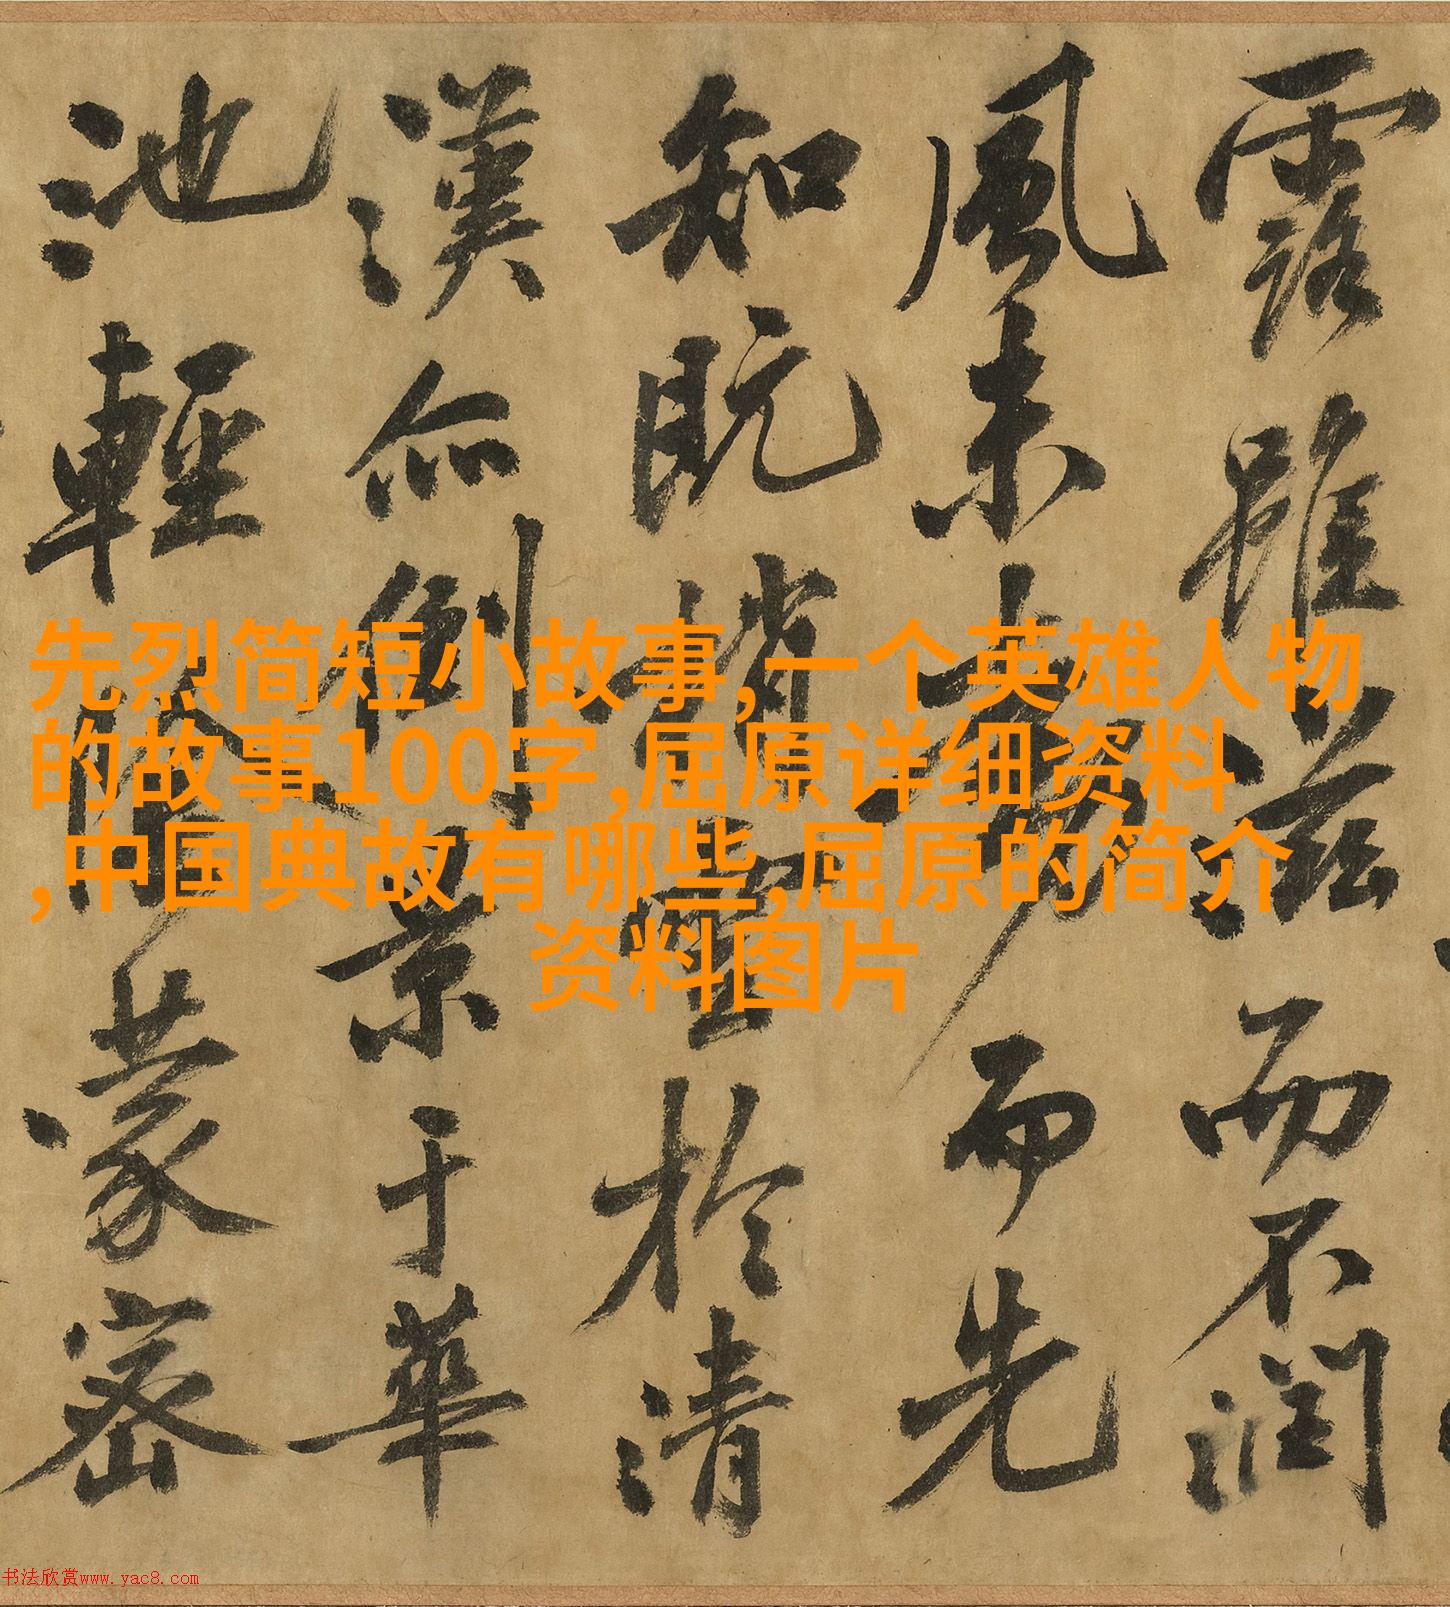 露雖滋而不潤
風未動而先
知既捎雲於清
漢亦倒景于華
池輕陰蒙密
先烈简短小故事,一个英雄人物
的故事100字,屈原详细资料
,中国典故有哪些,屈原的简介
资料图片
书法欣赏www.yac8.com